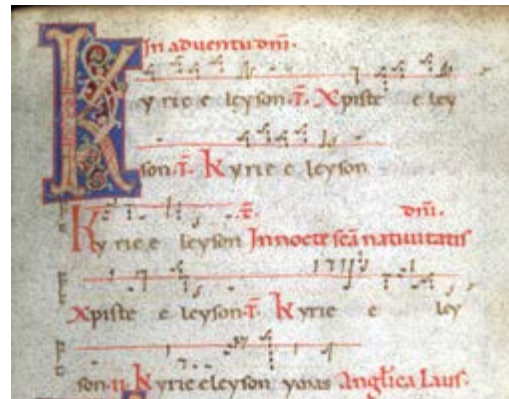 In adventu dnī.
Kyrie e leyson. t̄. Xpiste e ley
son. t̄. kyrie e leyson
.t̄. dnī.
Kyrie e leyson In nocte scā nativitatis
Xpiste e leyson. t̄. kyrie e ley
son. ii. kyrie eleyson ymas Anglica Laus.